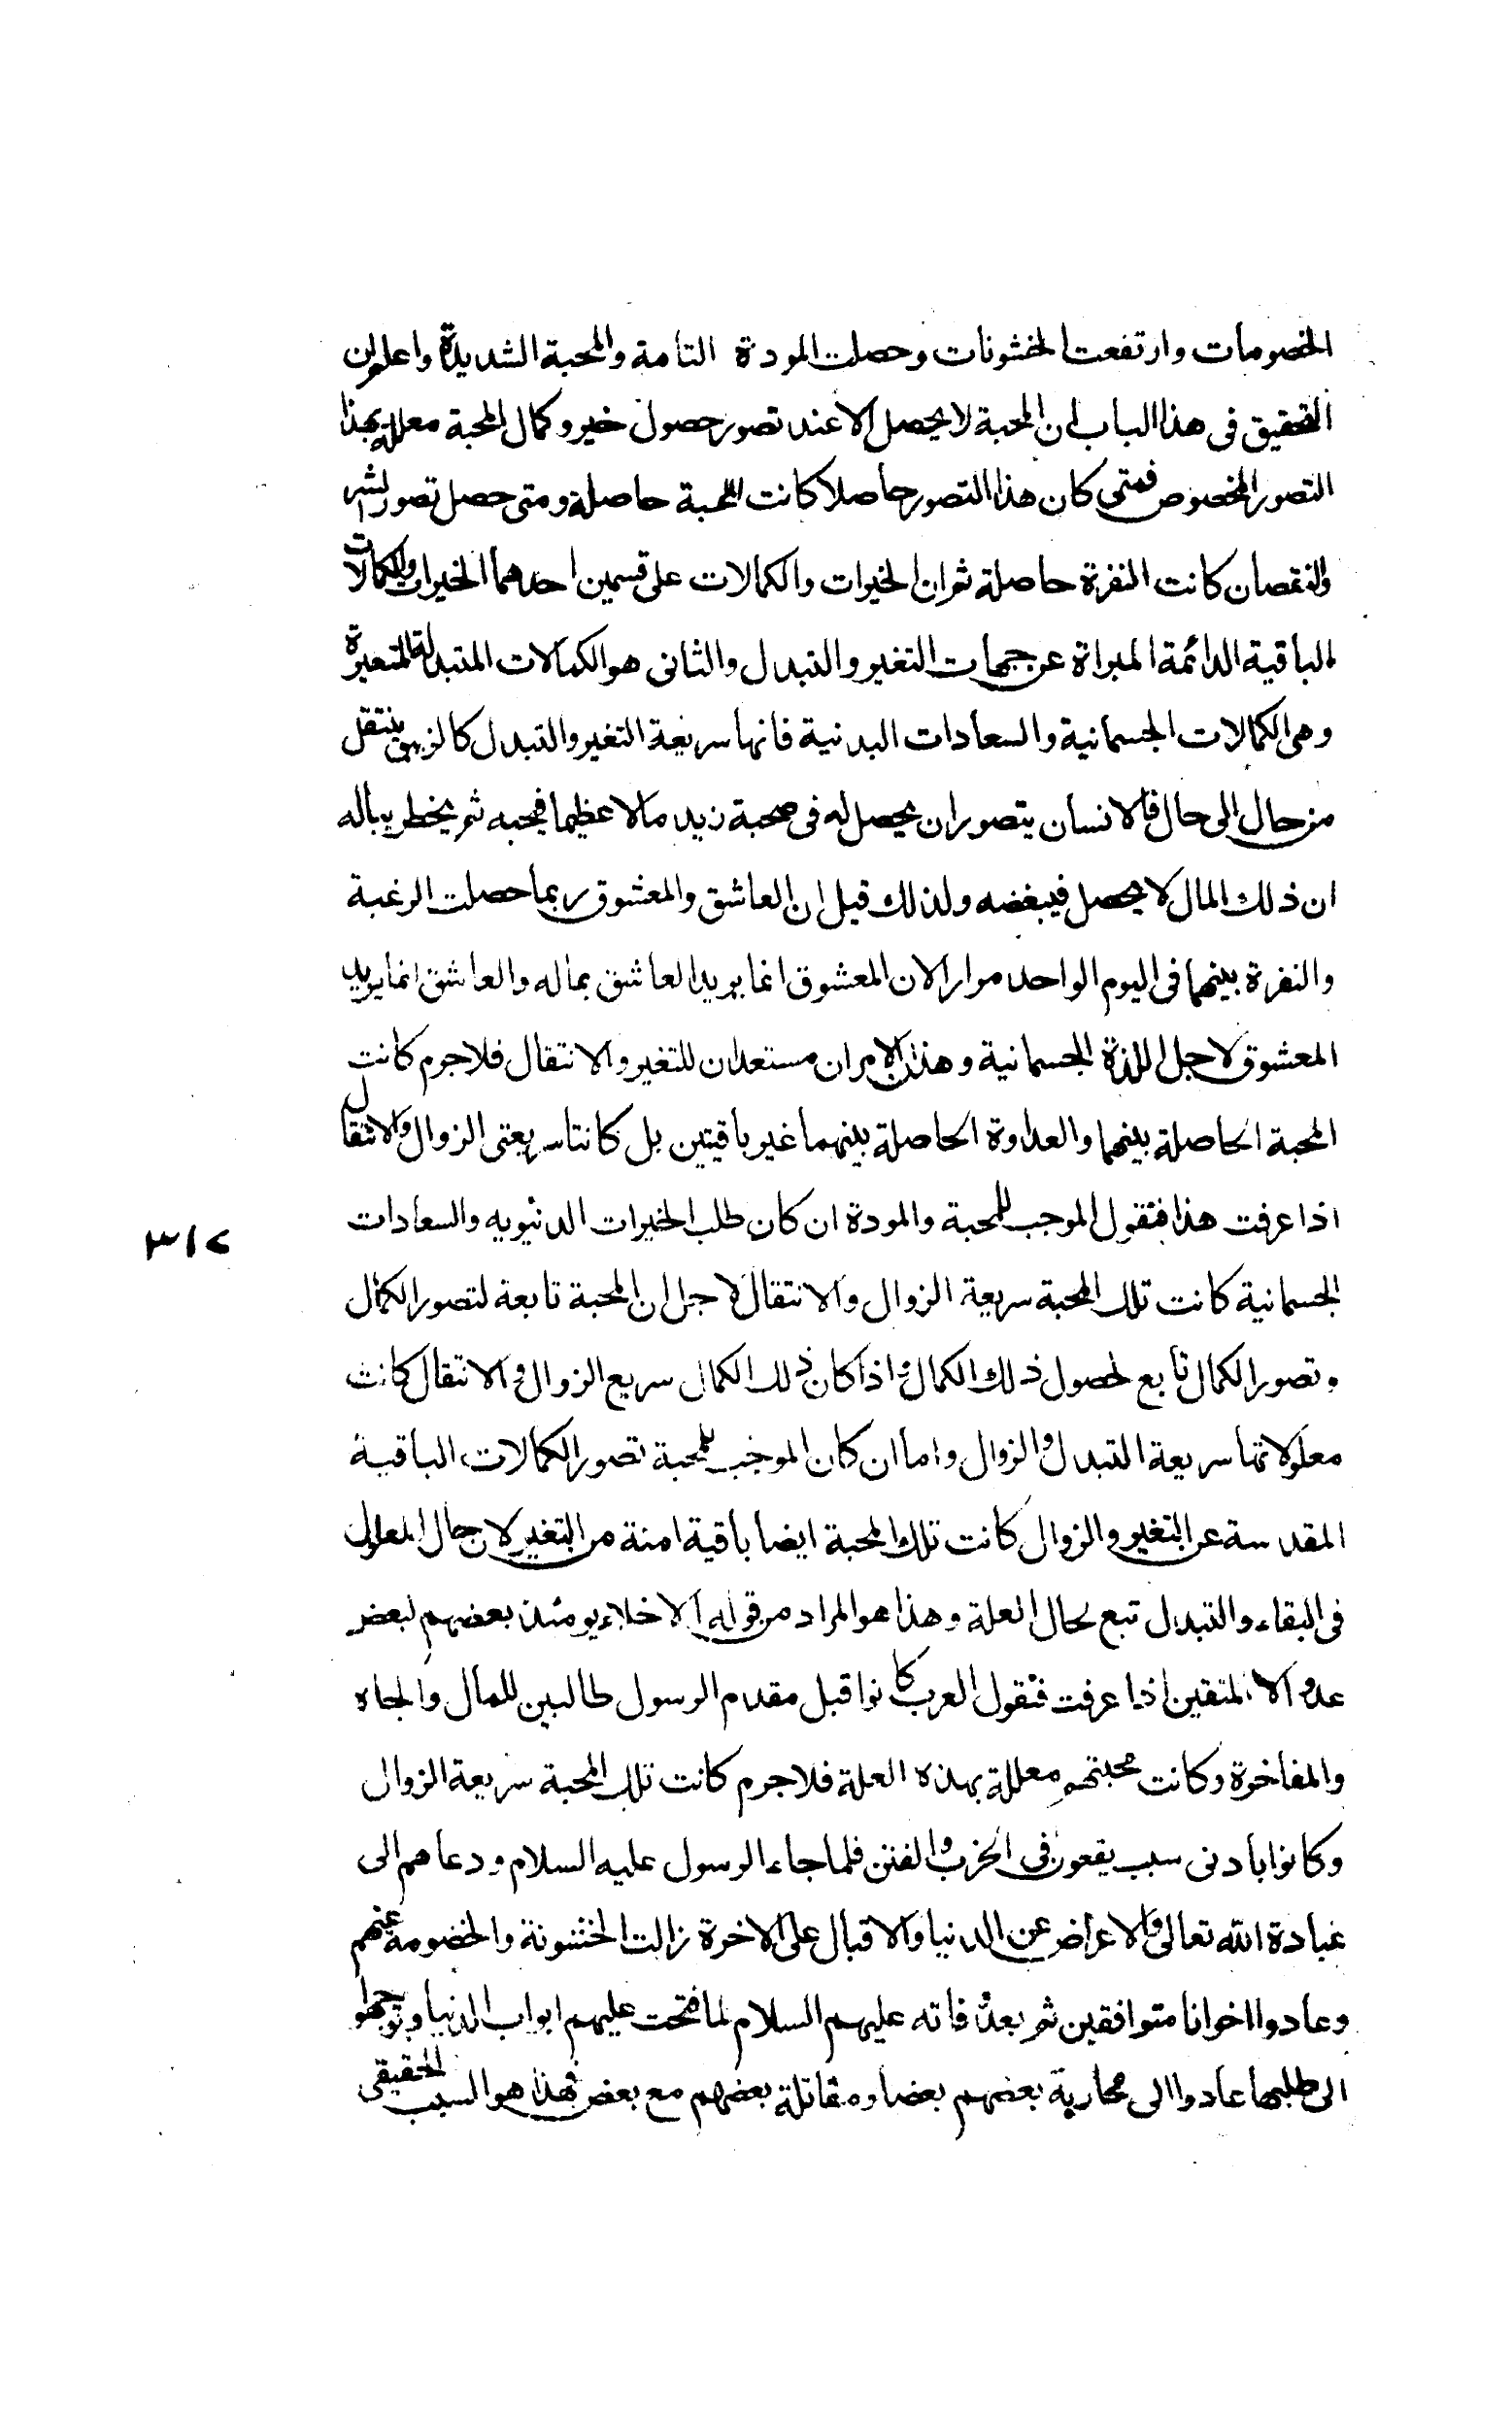 الخصومات وارتفعت الخشونات وحصلت المودة التامة والمحبة الشديدة واعلم ان
التحقيق فى هذا الباب ان المحبة لا يحصل الا عند تصور حصول خير وكمال المحبة معللة بهذا
التصور المخصوص فمتى كان هذا التصور حاصلا كانت المحبة حاصلة ومتى حصل تصور الشر
والنقصان كانت النفرة حاصلة ثم ان الخيرات والكمالات على قسمين احدهما الخيرات والكمالات
الباقية الدائمة المبراة عن جهات التغير والتبدل والثانى هو الكمالات المتبدلة المتغيرة
وهى الكمالات الجسمانية والسعادات البدنية فانها سريعة التغير والتبدل كالزيبق ينتقل
من حال الى حال فالانسان يتصور ان يحصل له فى صحبة زيد مالا عظيما فيحبه ثم يخطر بباله
ان ذلك المال لا يحصل فيبغضه ولذلك قيل ان العاشق والمعشوق ربما حصلت الرغبة
والنفرة بينهما فى اليوم الواحد مرارا لان المعشوق انما يريد العاشق بماله والعاشق انما يريد
المعشوق لاجل اللذة الجسمانية وهذان الامران مستعدان للتغير والانتقال فلاجرم كانت
المحبة الحاصلة بينهما والعداوة الحاصلة بينهما غير باقيتين بل كانتا سريعتى الزوال والانتقال
اذا عرفت هذا فنقول الموجب للمحبة والمودة ان كان طلب الخيرات الدنيويه والسعادات
٣١٢
الجسمانية كانت تلك المحبة سريعة الزوال والانتقال لاجل ان المحبة تابعة لتصور الكمال
وتصور الكمال تابع لحصول ذلك الكمال واذا كان ذلك الكمال سريع الزوال والانتقال كانت
معلولاتها سريعة التبدل والزوال واما ان كان الموجب للمحبة تصور الكمالات الباقية
المقدسة عن التغير والزوال كانت تلك المحبة ايضا باقية امنة من التغير لان حال المعلول
فى البقاء والتبدل تبع لحال العلة وهذا هو المراد من قوله الاخلاء يومئذ بعضهم لبعض
عدو الا المتقين اذا عرفت فنقول العرب كانوا قبل مقدم الرسول طالبين للمال والجاه
والمفاخرة وكانت محبتهم معللة بهذه العلة فلاجرم كانت تلك المحبة سريعة الزوال
وكانوا بادنى سبب يقعون فى الحرب والفتن فلما جاء الرسول عليه السلام ودعاهم الى
عبادة الله تعالى والاعراض عن الدنيا والاقبال على الاخرة زالت الخشونة والخصومة عنهم
وعادوا اخوانا متوافقين ثم بعد وفاته عليهم السلام لما فتحت عليهم ابواب الدنيا وتوجهوا
الى طلبها عادوا الى محاربة بعضهم بعضا ومقاتلة بعضهم مع بعض فهذا هو السبب الحقيقى